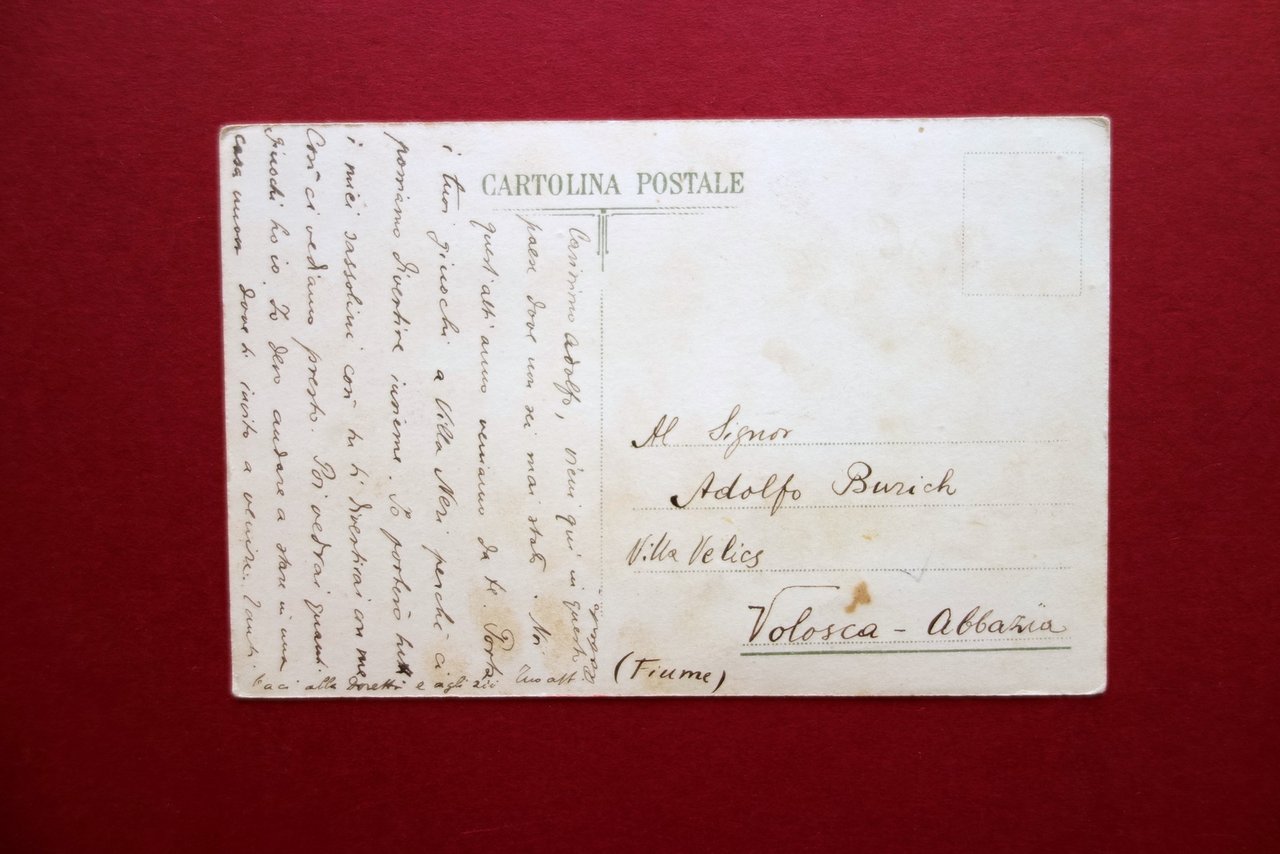 CARTOLINA POSTALE
Carissimo Adolfo, vieni qui in questo
paese dove non sei mai stato. Noi
quest'altr'anno veniamo da te. Porta
i tuoi giuochi a Villa Neri perchè ci
possiamo divertire insieme. Io porterò tutti
i miei sassolini così tu ti divertirai con me
Così ci vediamo presto. Poi vedrai quanti
giuochi ho io. Io devo andare a stare in una
casa nuova dove ti invito a venire. Tanti
baci alla Doretta e agli zii Tuo aff
Al Signor
Adolfo Burich
Villa Velics
Volosca - Abbazia
(Fiume)